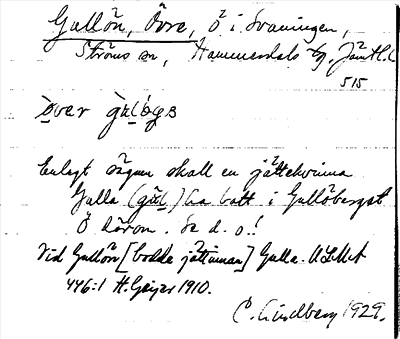 Gullön, Övre, ö i Svaningen,
Ströms sn, Hammerdals tg. Jämtl. l.
515
över
Enligt sägnen skall en jättekvinna
Gulla (gūl) ha bott i Gullöberget
Ö härom. Se d. o.!
Vid Gullön [bodde jättinnan] Gulla. ULMA
446:1 H. Geijer 1910.
C. Lindberg 1929.